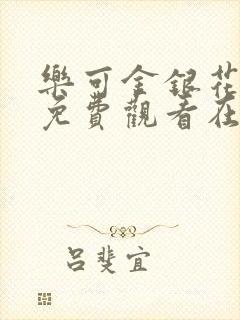 樂可金銀花
免費觀看在
呂斐宜